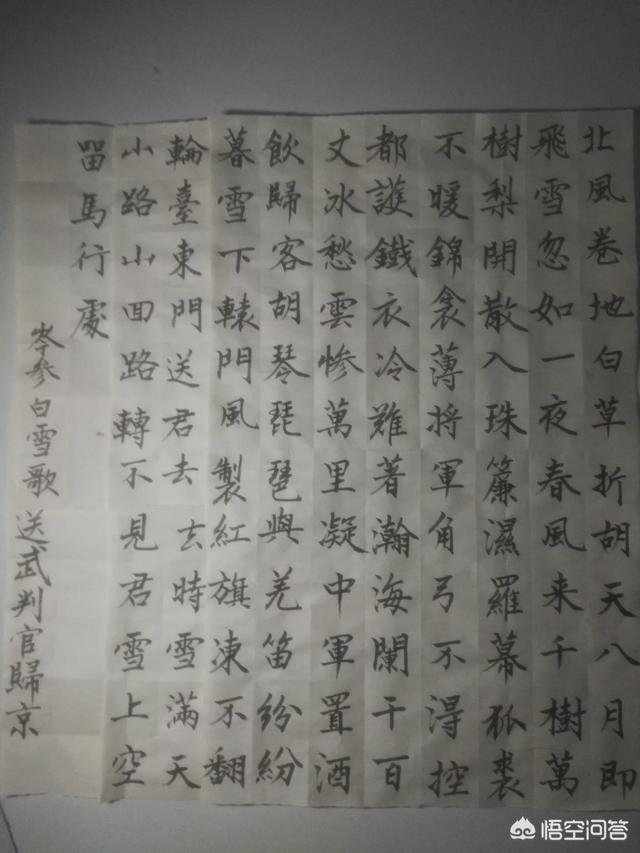 北風卷地白草折胡天八月即
飛雪忽如一夜春風来千樹萬
樹梨開散入珠簾濕羅幕狐裘
不暖錦衾薄将軍角弓不得控
都護鐵衣冷難著瀚海闌干百
丈冰愁雲慘萬里凝中軍置酒
飲歸客胡琴琵琶與羌笛紛紛
暮雪下轅門風製紅旗凍不翻
輪臺東門送君去去時雪滿天
山路山回路轉不見君雪上空
留馬行處
岑參白雪歌送武判官歸京
悟空问答